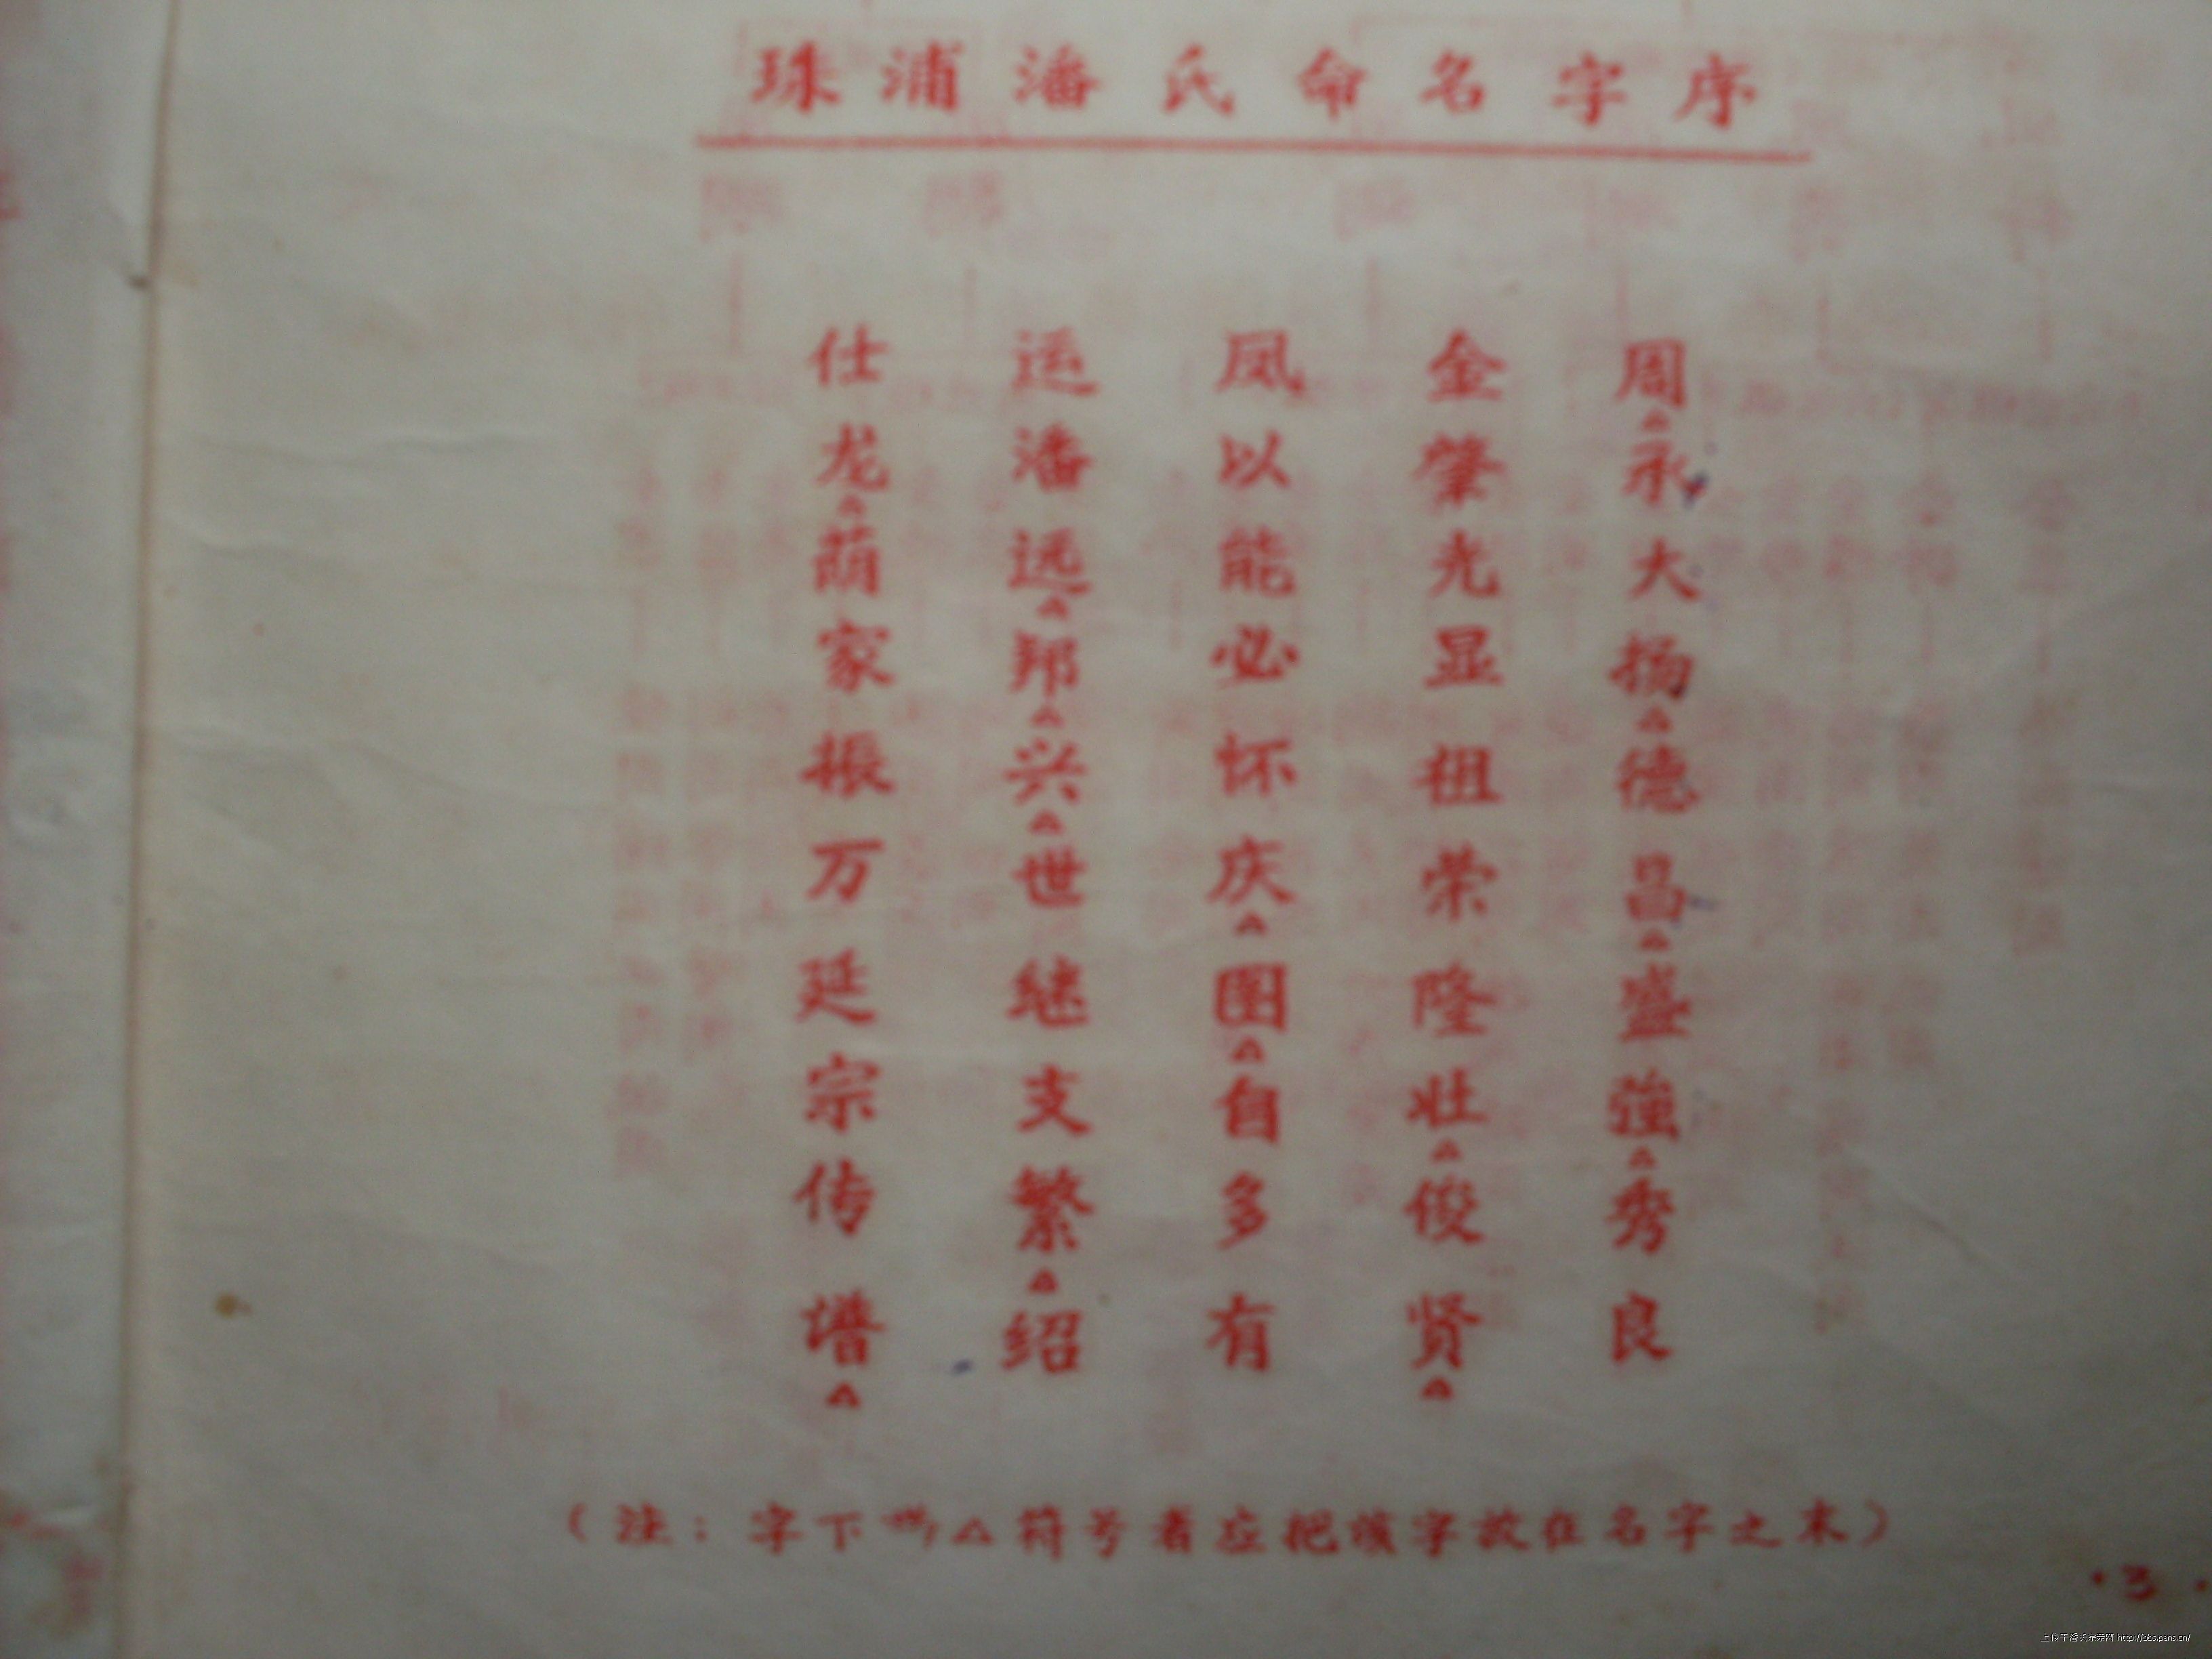 珠浦潘氏命名字序
周△永大扬△德昌△盛強△秀良
金肇光显祖荣隆壮△俊贤△
凤以能必怀庆△图△自多有
运潘远△邦△兴△世继支繁△绍
仕龙△荫家振万延宗传谱△
(注：字下△符号者应把该字放在名字之末)
·3·
上传于潘氏宗亲网 http://bbs.pans.cn/